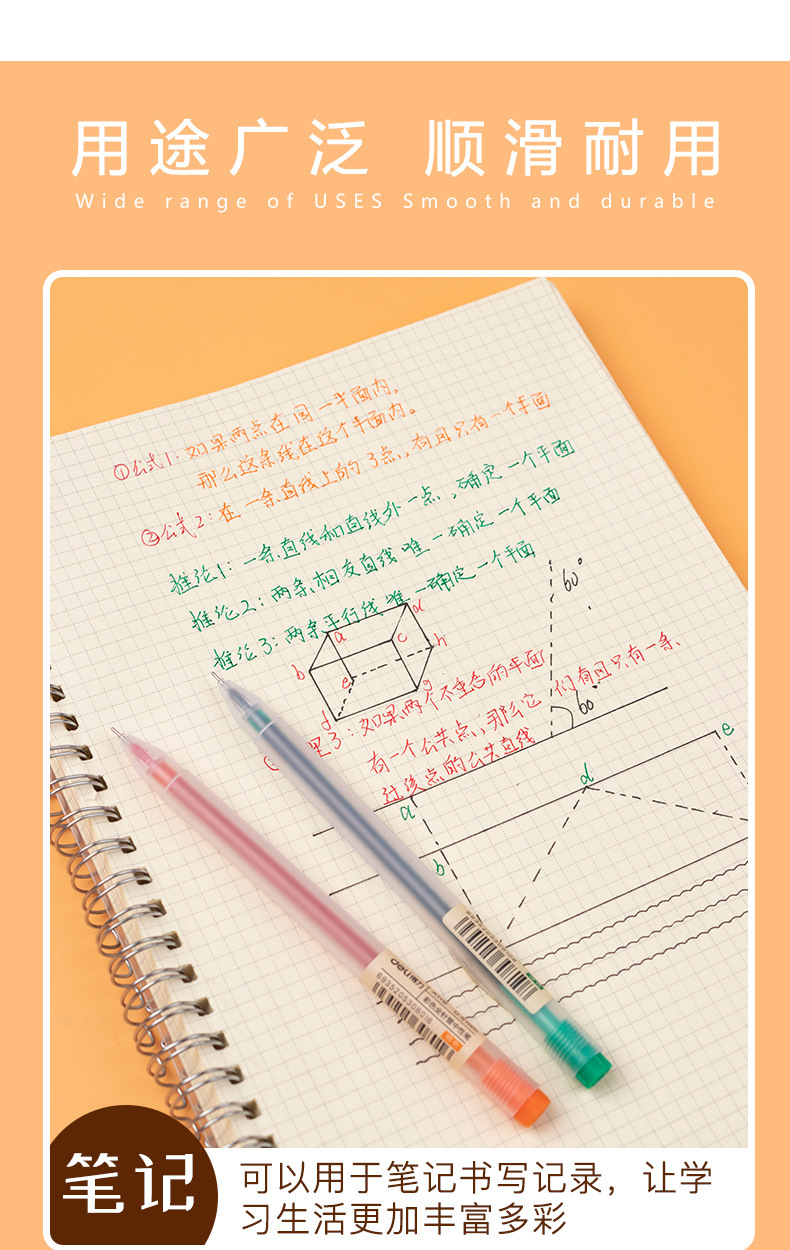 用途广泛 顺滑耐用
Wide range of USES Smooth and durable
①公式1：如果两点在同一平面内，
那么这条线在这个平面内。
②公式2：在一条直线上的3点，有且只有一个平面
推论1：一条直线和直线外一点，确定一个平面
推论2：两条相交直线唯一确定一个平面
推论3：两条平行线唯一确定一个平面
60°
a
d
c
h
b
e
g
d
里3：如果两个不重合的平面
有一个公共点，那么它们有且只有一条
过该点的公共直线
60°
e
d
a
b
deli得力
彩色全针管中性笔
6935205308016
笔记
可以用于笔记书写记录，让学
习生活更加丰富多彩